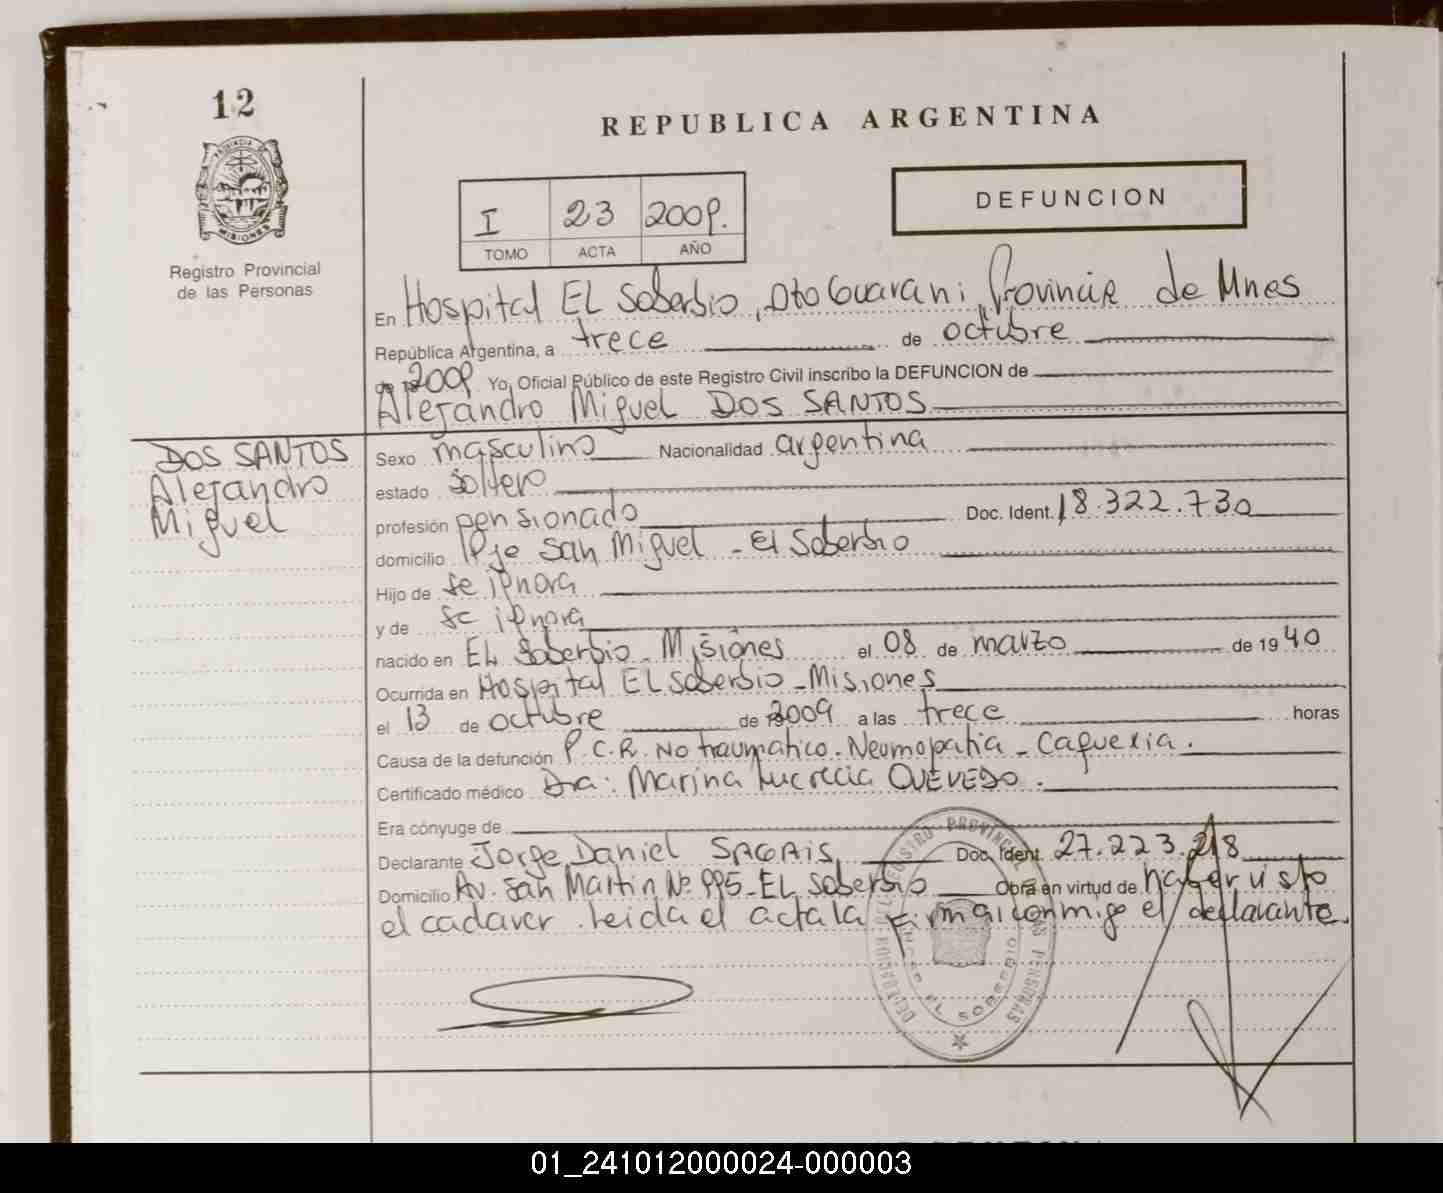 12
REPUBLICA ARGENTINA
PROVINCIA DE
MISIONES
Registro Provincial
de las Personas
I 23 2009.
TOMO ACTA AÑO
DEFUNCION
En Hospital EL Soberbio, Dto Guarani, Provincia de Mnes
República Argentina, a trece de octubre
de 2009 Yo, Oficial Público de este Registro Civil inscribo la DEFUNCION de
Alejandro Miguel DOS SANTOS
DOS SANTOS
Alejandro
Miguel
Sexo masculino Nacionalidad argentina
estado soltero
profesión pensionado Doc. Ident. 18.322.730
domicilio Pje San Miguel - El Soberbio
Hijo de se ignora
y de se ignora
nacido en EL Soberbio - Misiones el 08 de marzo de 1940
Ocurrida en Hospital EL Soberbio - Misiones
el 13 de octubre de 2009 a las trece horas
Causa de la defunción P.C.R. No traumatico. Neumopatia - Caquexia.
Certificado médico Dra: Marina Lucrecia QUEVEDO.
Era cónyuge de
Declarante Jorge Daniel Doc. Ident. 27.223.218
Domicilio Av. San Martin Nº 995 - EL Soberbio Obra en virtud de haber visto
el cadaver. Leida el acta la firma conmigo el declarante.
REGISTRO PROVINCIAL DE LAS PERSONAS
EL SOBERBIO
01_241012000024-000003